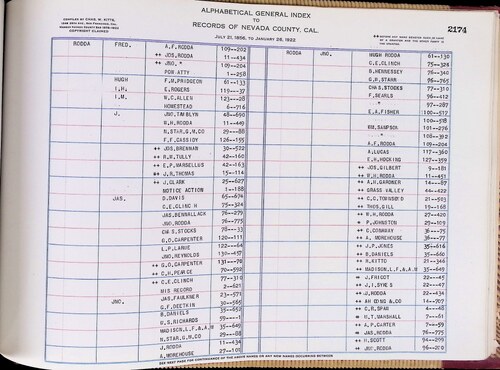 ALPHABETICAL GENERAL INDEX
TO
RECORDS OF NEVADA COUNTY, CAL.
JULY 21, 1856, TO JANUARY 26, 1922
COMPILED BY CHAS. W. KITTS,
COPYRIGHT CLAIMED
2174
RODDA FRED. A.F. RODDA 109—202
++ JOS, RODDA 11—434
++ JNO, " 109—204
POR ATTY 1—258
HUGH F.M, PRIDGEON 61—133
I,H, E, ROGERS 119—37
I,M, W, C, ALLEN 123—28
HOMESTEAD 6—716
J. JNO, TAMBLYN 48—690
R, H, RODDA 11—449
N, STAR, G, M, CO 29—88
F, F, CASSIDY 126—155
++ JOS, BRENNAN 30—572
++ R, W, TULLY 42—160
++ E, P, MARSELLUS 42—163
++ J, R, THOMAS 15—114
++ J, CLARK 25—627
NOTICE ACTION 1—188
JAS, D, DAVIES 65—674
C, E, CLINCH 75—324
JAS, BENNALLACK 76—279
JNO, RODDA 76—775
CHAS, STOCKS 78—33
G, D, CARPENTER 120—111
L, P, LARUE 122—64
JNO, REYNOLDS 130—457
++ G, D, CARPENTER 131—70
++ C, H, PEARCE 70—592
++ C, E, CLINCH 77—310
HIS RECORD 2—621
JNO, JAS, FAULKNER 23—571
G, F, DEETKIN 30—585
B, DANIELS 35—652
W, G, RICHARDS 59—1
MADISON, L, F, & A, M 35—649
N, STAR, G, M, CO 29—88
J, RODDA 11—434
A, MOREHOUSE 27—102
RODDA JNO, HUGH RODDA 61—130
C, E, CLINCH 75—324
B, HENNESSY 76—340
G, W, STARR 76—765
CHAS, STOCKS 77—310
F, SEARLS 96—412
" 97—287
E, A, FISHER 100—517
" 100—518
WM, SAMPSON 101—276
" 108—392
A, F, RODDA 109—204
A, LUCAS 117—360
E, H, HOCKING 127—359
++ JOS, GILBERT 9—181
++ R, H, RODDA 11—451
++ A, H, GARDNER 14—87
++ GRASS VALLEY 44—622
++ C, C, TOWNSEND 21—503
++ THOS, GILL 19—168
++ R, H, RODDA 27—420
++ P, JOHNSTON 29—109
++ C, CONAWAY 36—75
++ A, MOREHOUSE 36—77
++ J, P, JONES 35—616
++ B, DANIELS 35—660
++ W, KITTO 21—346
++ MADISON, L, F, & A, M 35—649
++ J, FRICOT 22—45
++ J, I, SYKES 22—47
++ J, RODDA 22—434
++ AH DING & CO 14—707
++ C, H, SPAR 4—48
++ W, T, MARSHALL 7—61
++ A, P, CARTER 7—59
++ JAS, RODDA 76—775
++ H, SCOTT 94—206
++ JNO, RODDA 96—200
SEE NEXT PAGE FOR CONTINUANCE OF THE ABOVE NAMES OR ANY NEW NAMES OCCURRING BETWEEN